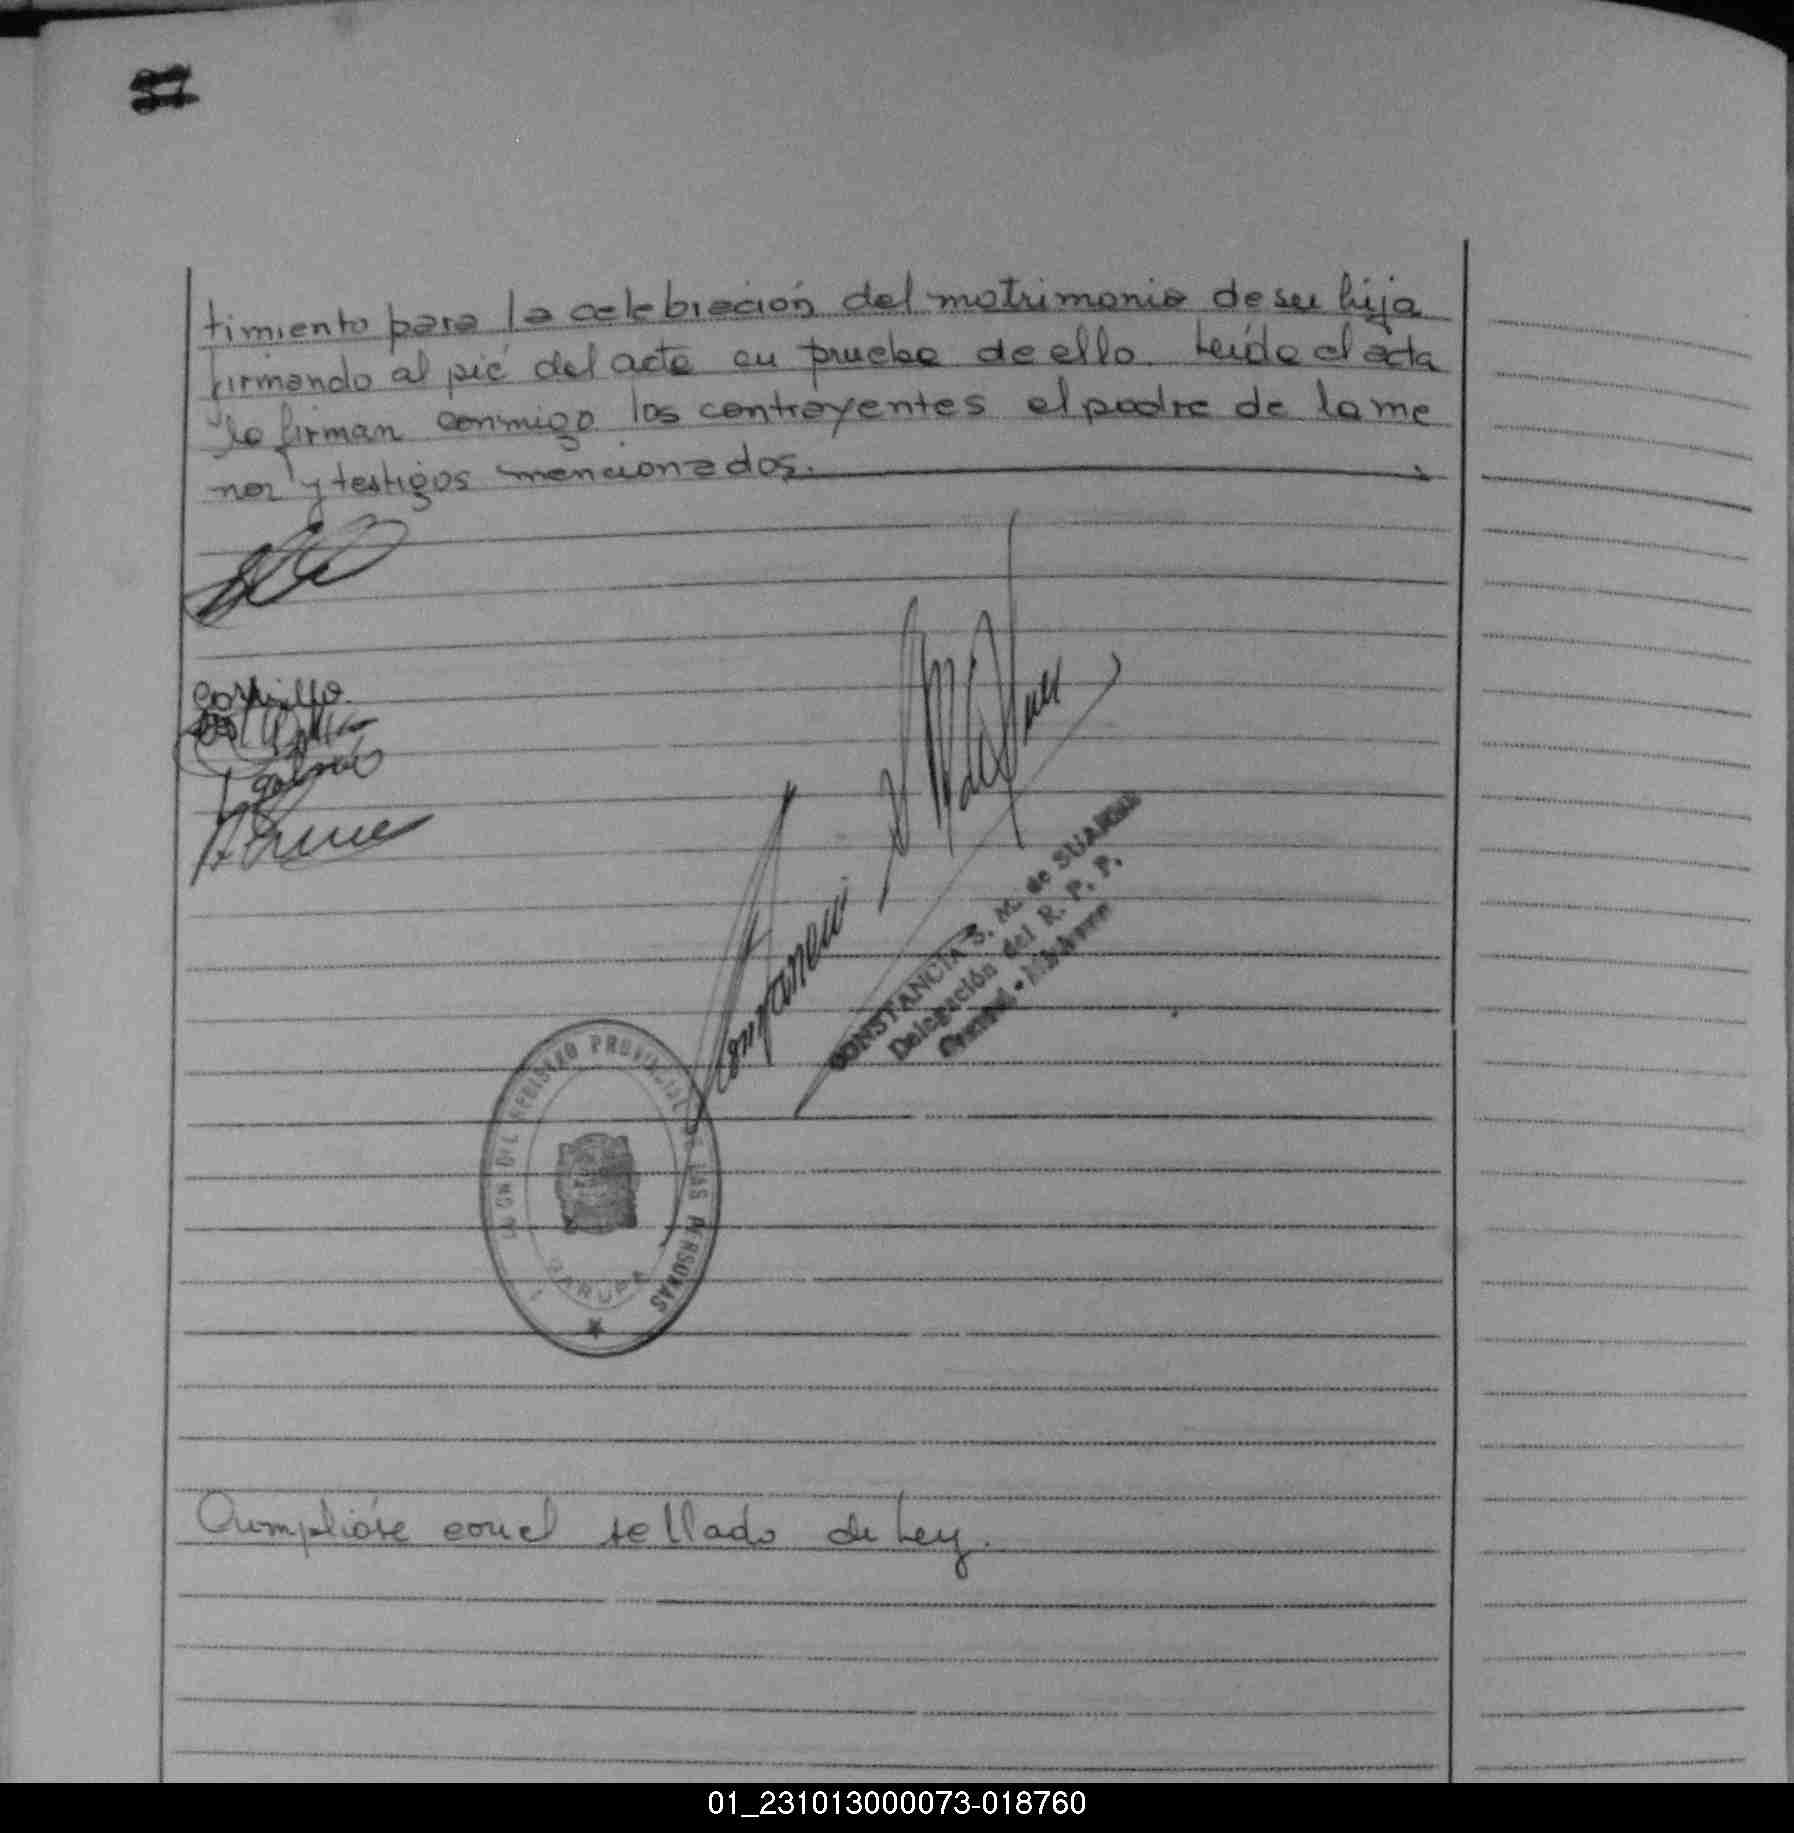 37
timiento para la celebración del matrimonio de su hija
firmando al pié del acta en prueba de ello. Leída el acta
la firman conmigo los contrayentes el padre de la me
nor y testigos mencionados.
CONSTANCIA S. M. de SUAREZ
Delegación del R. P. P.
REGISTRO PROVINCIAL DE LAS PERSONAS
GARUPA
Cumplióse con el sellado de Ley.
01_231013000073-018760